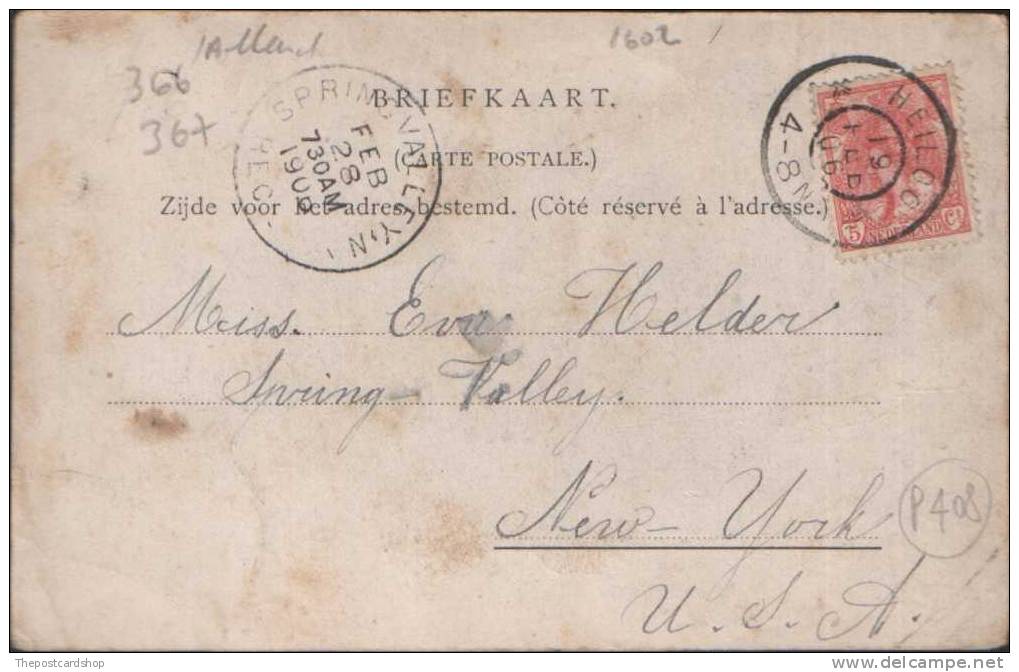 1602
366
367
BRIEFKAART.
(CARTE POSTALE.)
Zijde voor het adres bestemd. (Côté réservé à l'adresse.)
SPRING VALLEY, N.Y.
FEB
28
730AM
190
REC'
HEILOO
19 FEB
06
4-8N
5 NEDERLAND Ct
Miss. Eva Helder
Spring-Valley.
New-York
U.S.A.
P408
Thepostcardshop
www.delcampe.net